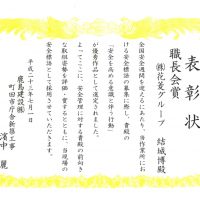 表彰状
職長会賞
㈱花菱グループ 結城博殿
全国安全週間を迎えるにあたり、当作業所にお
ける安全標語の募集に際し、貴殿の
「安全も高める意識と伴う行動」
が優秀作品として選定されました
よってここに、安全管理に対する貴殿の前向き
な取組姿勢を評価・賞するとともに、当現場の
安全標語として採用させていただきます。
平成二十三年七月一日
鹿島建設㈱
町田市庁舎新築工事
濱中 麗